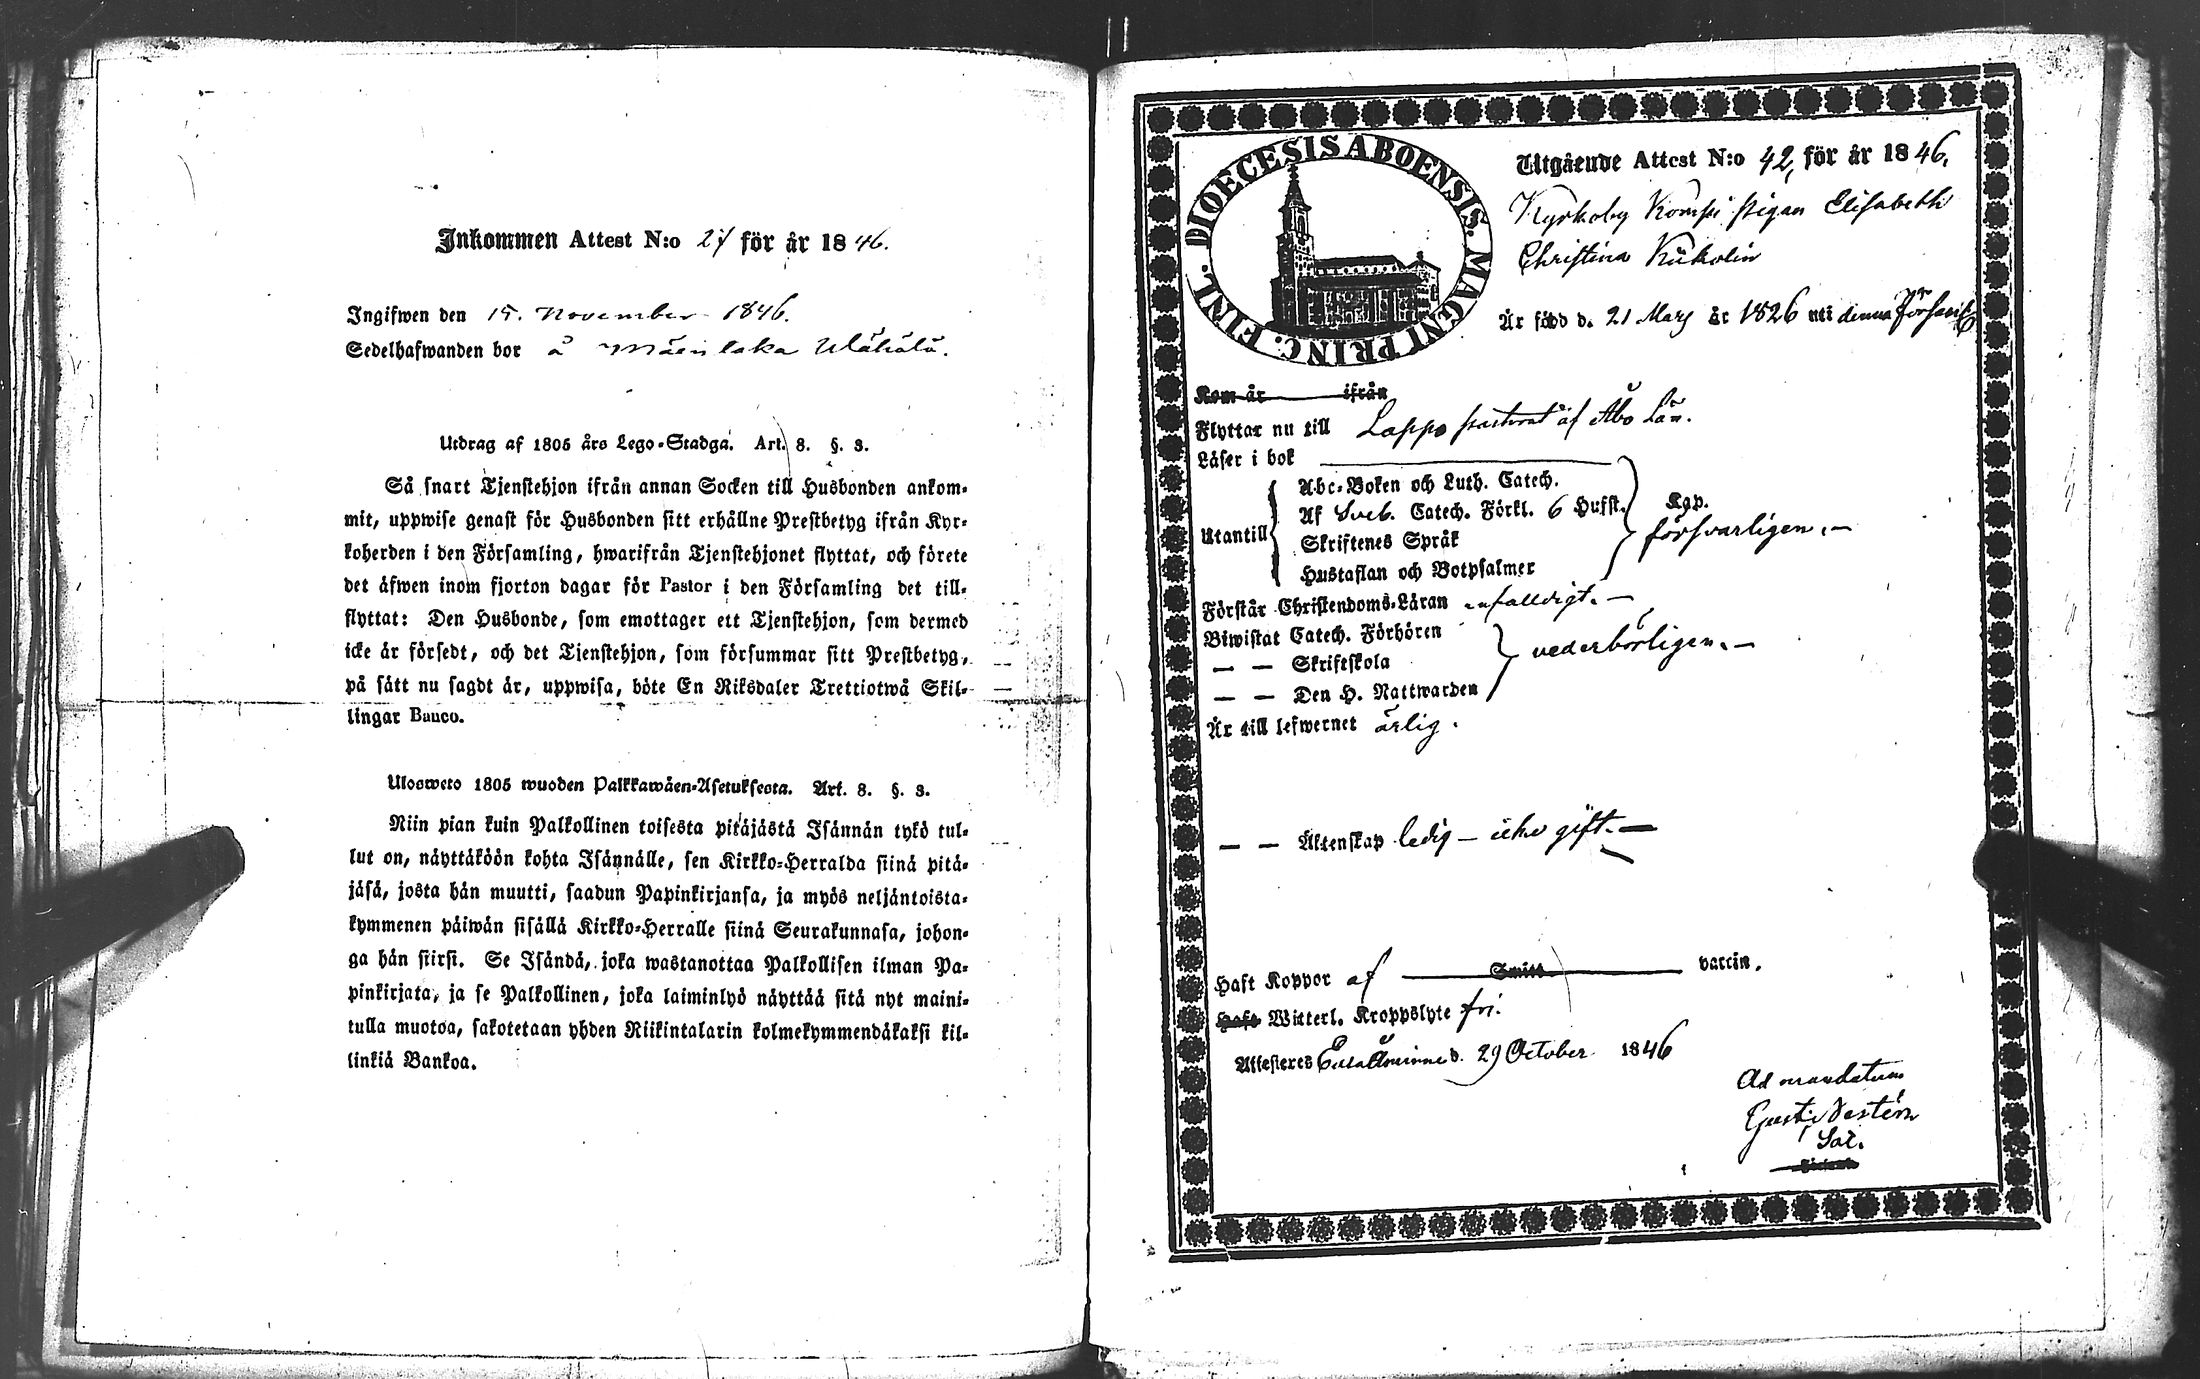 Inkommen Attest N:o 27 för år 1846.
Ingifwen den 15. November 1846.
Sedelhafwanden bor å Mäenlaka Ulähälä.
Utdrag af 1805 års Lego-Stadga. Art. 8. §. 3.
Så snart Tjenstehjon ifrån annan Socken till Husbonden ankom-
mit, uppwise genast för Husbonden sitt erhållne Prestbetyg ifrån Kyr-
koherden i den Församling, hwarifrån Tjenstehjonet flyttat, och förete
det äfwen inom fjorton dagar för Pastor i den Församling det till-
flyttat: Den Husbonde, som emottager ett Tjenstehjon, som dermed
icke är försedt, och det Tjenstehjon, som försummar sitt Prestbetyg,
på sätt nu sagdt är, uppwisa, böte En Riksdaler Trettiotwå Skil-
lingar Banco.
Ulosweto 1805 wuoden Palkkawäen-Asetuksesta. Art. 8. §. 3.
Niin pian kuin Palkollinen toisesta pitäjästä Isännän tykö tul-
lut on, näyttäköön kohta Isännälle, sen Kirkko-Herralda siinä pitä-
jäsä, josta hän muutti, saadun Papinkirjansa, ja myös neljäntoista-
kymmenen päiwän sisällä Kirkko-Herralle siinä Seurakunnasa, johon-
ga hän siirsi. Se Isändä, joka wastanottaa Palkollisen ilman Pa-
pinkirjata, ja se Palkollinen, joka laiminlyö näyttää sitä nyt maini-
tulla muotoa, sakotetaan yhden Riikintalarin kolmekymmendäkaksi kil-
linkiä Bankoa.
DIOECESIS ABOENSIS. MAGNI PRINC. FINL.
Utgående Attest N:o 42, för år 1846.
Kyrkoby Kompi pigan Elisabeth
Christina Kükolin
Är född d. 21 Mars år 1826 uti denna Församl.
Kom år ifrån
Flyttar nu till Lappo pastorat af Åbo Län.
Läser i bok
Abc-Boken och Luth. Catech.
Af Sveb. Catech. Förkl. 6 Hufst. Kap.
Utantill försvarligen.
Skriftenes Språk
Hustaflan och Botpsalmer
Förstår Christendoms-Läran enfalldigt.
Biwistat Catech. Förhören
— — Skriftskola vederbörligen.
— — Den H. Nattwarden
Är till lefwernet ärlig.
— — Äktenskap ledig — icke gift.
Haft Koppor af Smitt vaccin.
Haft Witterl. Kroppslyte fri.
Attesteres d. 29 October 1846
Ad mandatum
Gust. Vestén
Sac.